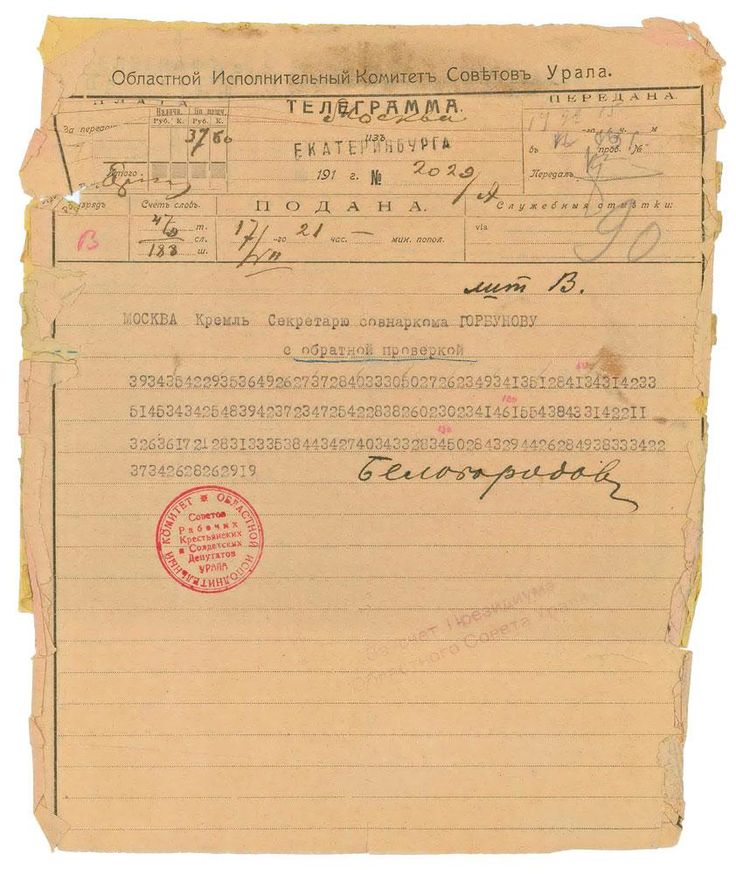 Областной Исполнительный Комитетъ Совѣтовъ Урала.
ПЛАТА
ТЕЛЕГРАММА.
ПЕРЕДАНА
Руб. К. Руб. К.
37 60
Москва
изъ
ЕКАТЕРИНБУРГА
191 г. № 2029/А
-го ч. м
въ проб. №
Передалъ
Счетъ словъ.
ПОДАНА.
Служебныя отмѣтки:
В
т.
сл.
183 ш.
17/VII -го 21 час. — мин. попол.
via
90
лит В.
МОСКВА Кремль Секретарю совнаркома ГОРБУНОВУ
с обратной проверкой
39343542293536492627372840333050272623493413512841343142233
514534342548394237234725422838260230234146155438433142211
32636172128313335384434274034332834502843294426284938333422
37342628262919
Белобородов
ОБЛАСТНОЙ ИСПОЛНИТЕЛЬНЫЙ КОМИТЕТ
Советов
Рабочих
Крестьянских
и Солдатских
Депутатов
УРАЛА
За счет Президиума
Областного Совета Урала